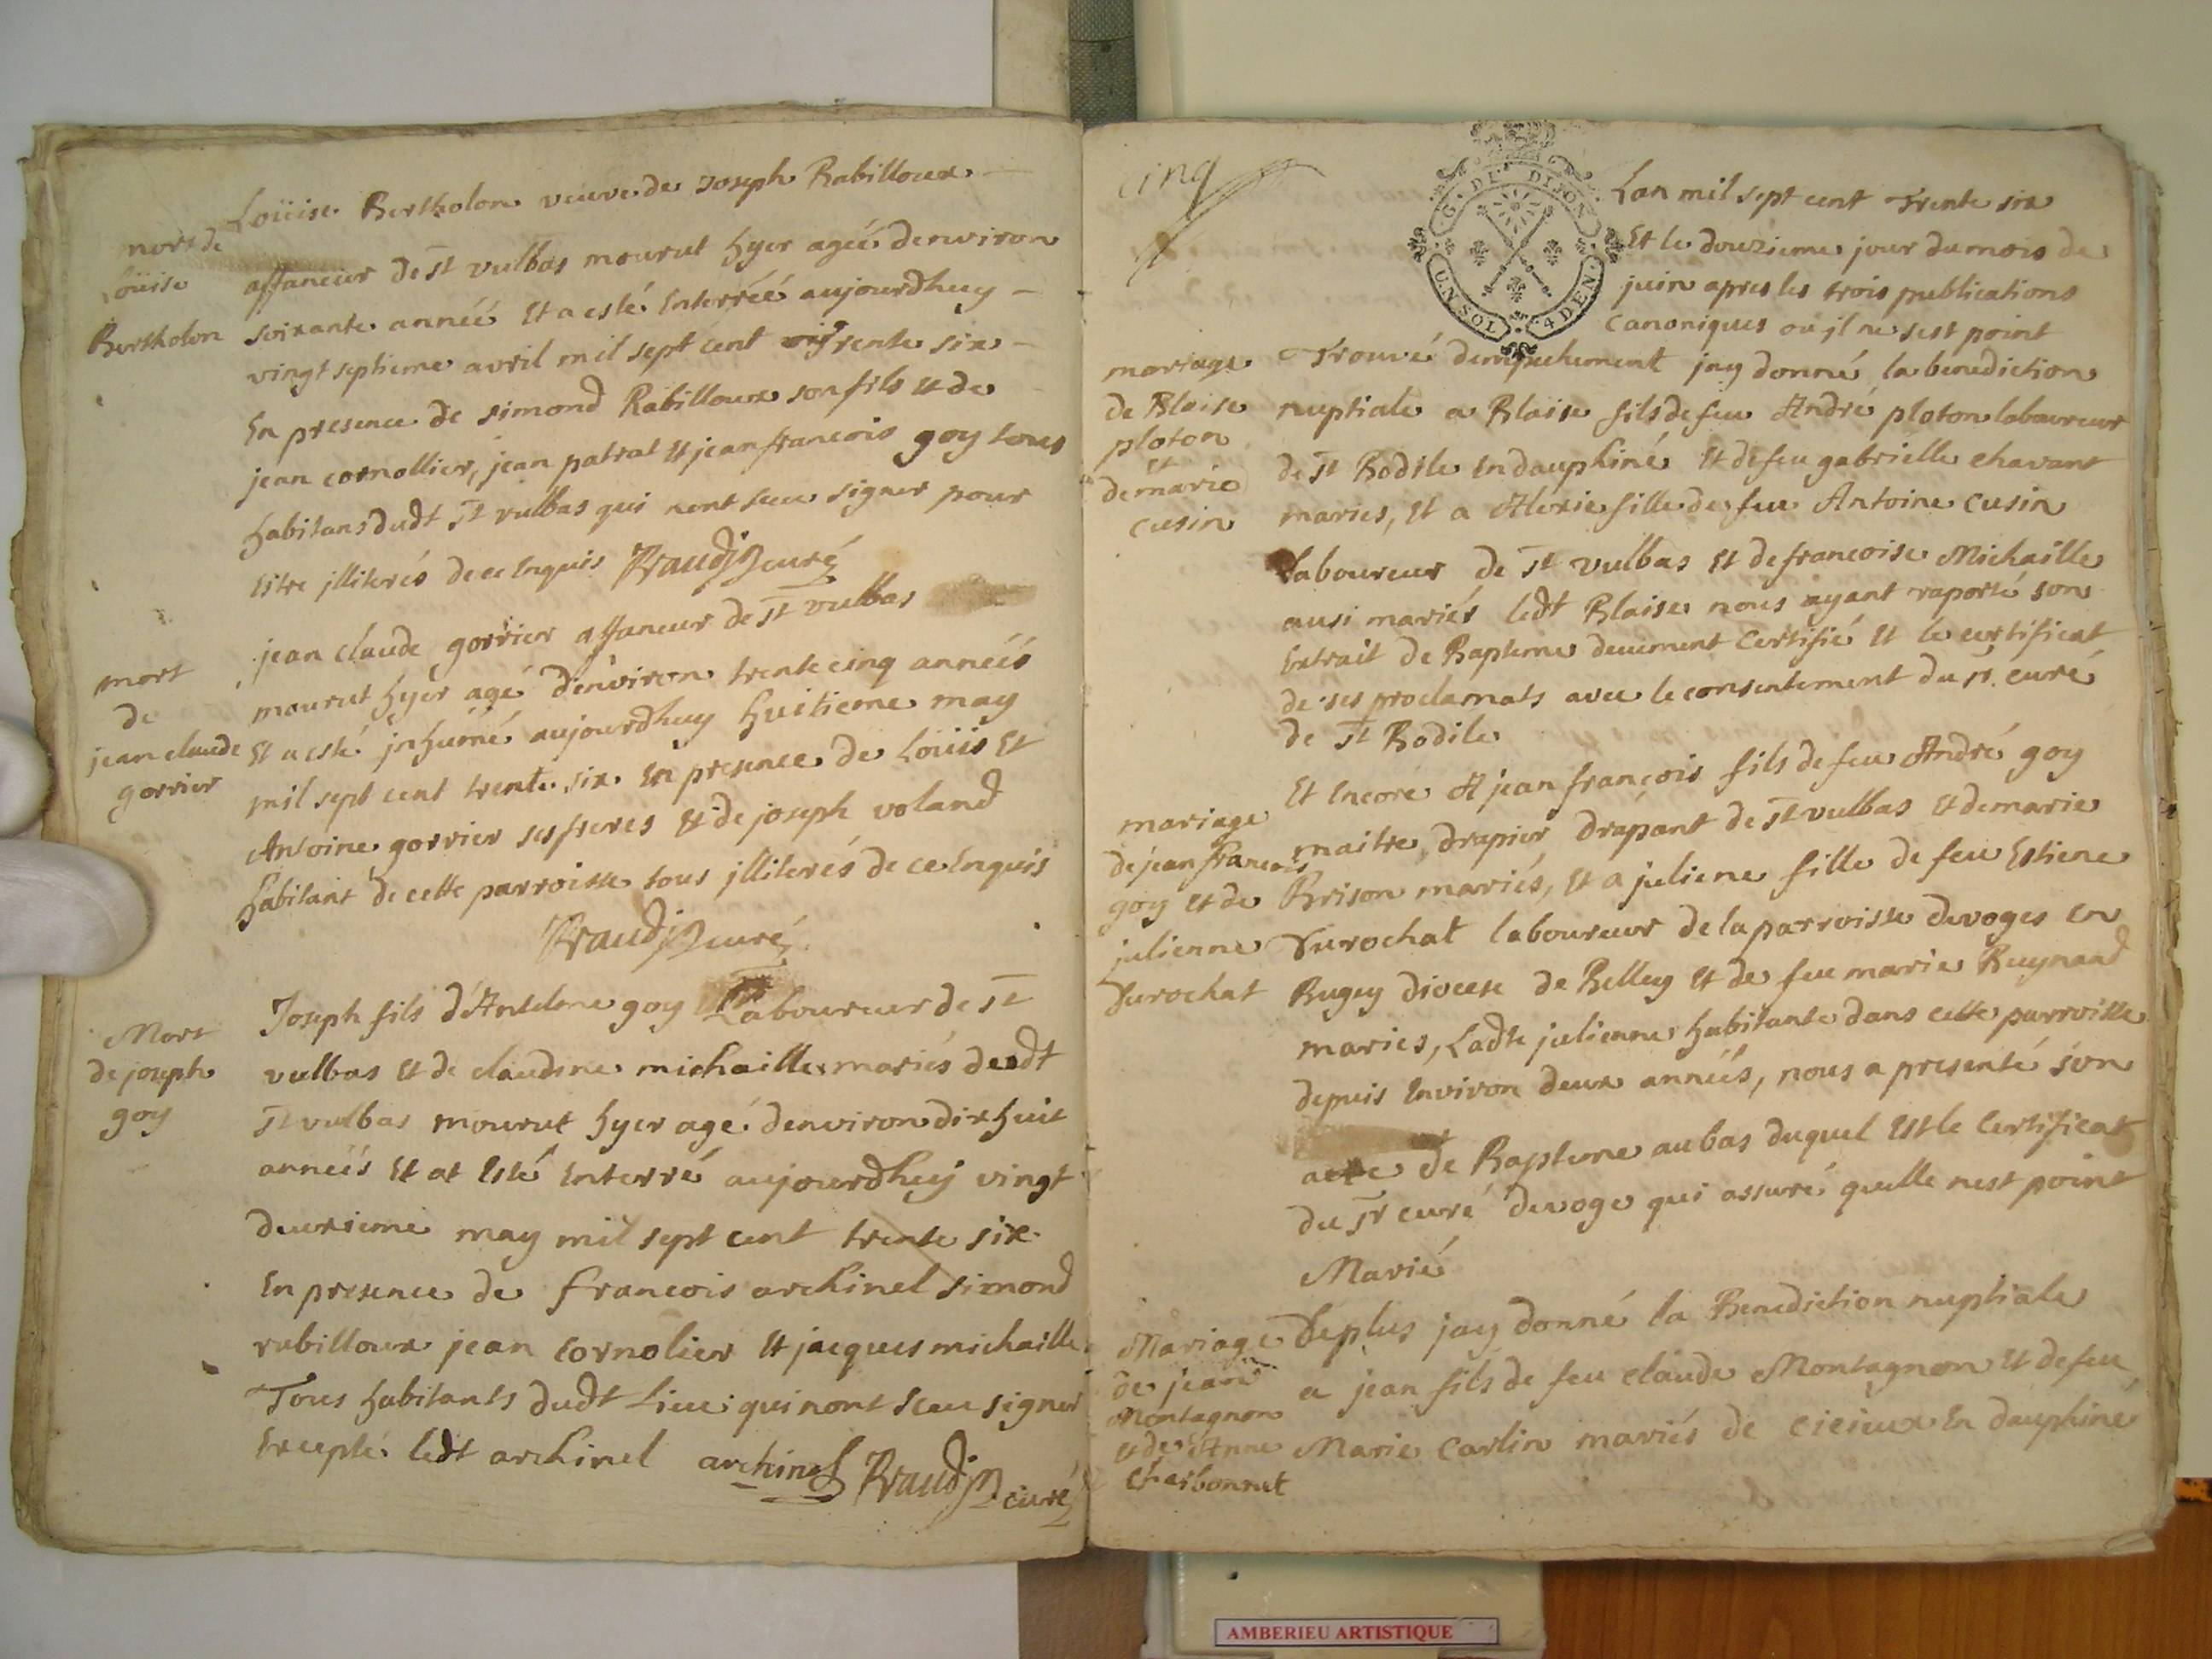 mort de
Loüise
Bertholon
Loüise Bertholon veuve de Joseph Rabilloux
affaneur de St vulbas mourut hyer ageé denviron
soixante anneé Et a esté Enterreé aujourdhuy
vingt septieme avril mil sept cent trente six
En presence de simond Rabilloux son fils et de
jean cornollier, jean patral Et jean francois goy tous
habitans dudt St vulbas qui nont sceu signer pour
estre jlliterés de ce Enquis Braudj curé
mort
de
jean claude
gorrier
jean claude gorrier affaneur de St vulbas
mourut hyer agé d'environ trente cinq anneés
Et a esté jnhumé aujourdhuy huitieme may
mil sept cent trente six En presence de Loüis Et
Antoine gorrier ses freres Et de joseph voland
habitant de cette parroisse tous jlliterés de ce Enquis
Braudj curé
Mort
de joseph
goy
Joseph fils d'Antelme goy Laboureur de St
vulbas Et de claudine michaille mariés dudt
St vulbas mourut hyer agé denviron dix huit
anneés Et at Esté Enterré aujourdhuy vingt
deuxieme may mil sept cent trente six
En presence de francois archinel simond
rabilloux jean cornolier Et jacques michaille
Tous habitants dudt Lieu qui nont sceu signer
Excepté ledt archinel archinel Braudj curé
cinq
G. DE DIJON
UN SOL 4 DEN.
Lan mil sept cent Trente six
Et le douzieme jour du mois de
juin apres les trois publications
canoniques ou jl ne sest point
mariage
de Blaise
ploton
et
de marie
cusin
Trouvé dempechement jay donné la benediction
nuptiale a Blaise fils de feu André ploton laboureur
de St Bodile En dauphiné Et de feu gabrielle chavant
maries, Et a Alexie fille de feu Antoine Cusin
Laboureur de St vulbas Et de francoise Michaille
ausi mariés ledt Blaise nous ayant raporté son
Extrait de Bapteme deuement Certifié Et le certificat
de ses proclamats avec le consentement du sr. curé
de St Bodile
mariage
de jean francois
goy et de
julienne
Durochat
Et Encore A jean françois fils de feu André goy
maitre drapier drapant de St vulbas Et de marie
Brison mariés, Et a juliene fille de feu Estiene
Durochat laboureur de la parroisse devoges en
Bugey diocese de Belley Et de feu marie Buynand
maries, Ladte julienne habitante dans cette parroisse
depuis Environ deux anneés, nous a presenté son
acte de Bapteme au bas duquel Est le Certificat
du Sr curé devoge qui assuré quelle nest point
Marié
Mariage
de jean
Montagnon
et de Anne
Charbonnet
Deplus jay donné la Benediction nuptiale
a jean fils de feu claude Montagnon Et de feu
Marie Carlin mariés de cieieux En dauphiné
AMBERIEU ARTISTIQUE